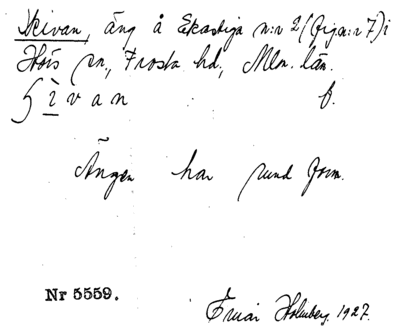 Skivan, äng å Ekastiga n:r 2 (fig a: n 7) i
Hörs sn, Frosta hd, Mlm. län.
f.
Ängen har rund form.
Nr 5559.
Einar Holmberg. 1927.